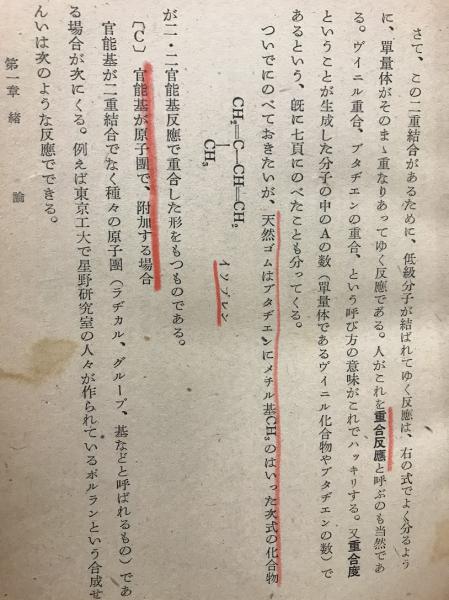 さて、この二重結合があるために、低級分子が結ばれてゆく反應は、右の式でよく分るよう
に、單量体がそのまゝ重なりあってゆく反應である。人がこれを重合反應と呼ぶのも当然であ
る。ヴィニル重合、ブタヂエンの重合、という呼び方の意味がこれでハッキリする。又重合度
ということが生成した分子の中のAの数(單量体であるヴィニル化合物やブタヂエンの数)で
あるという、既に七頁にのべたことも分ってくる。
ついでにのべておきたいが、天然ゴムはブタヂエンにメチル基CH₃のはいった次式の化合物
CH₂=C—CH=CH₂
CH₃
イソプレン
が二・二官能基反應で重合した形をもつものである。
〔C〕 官能基が原子團で、附加する場合
官能基が二重結合でなく種々の原子團(ラヂカル、グループ、基などと呼ばれるもの)であ
る場合が次にくる。例えば東京工大で星野研究室の人々が作られているポルランという合成せ
んいは次のような反應でできる。
第一章 緒論